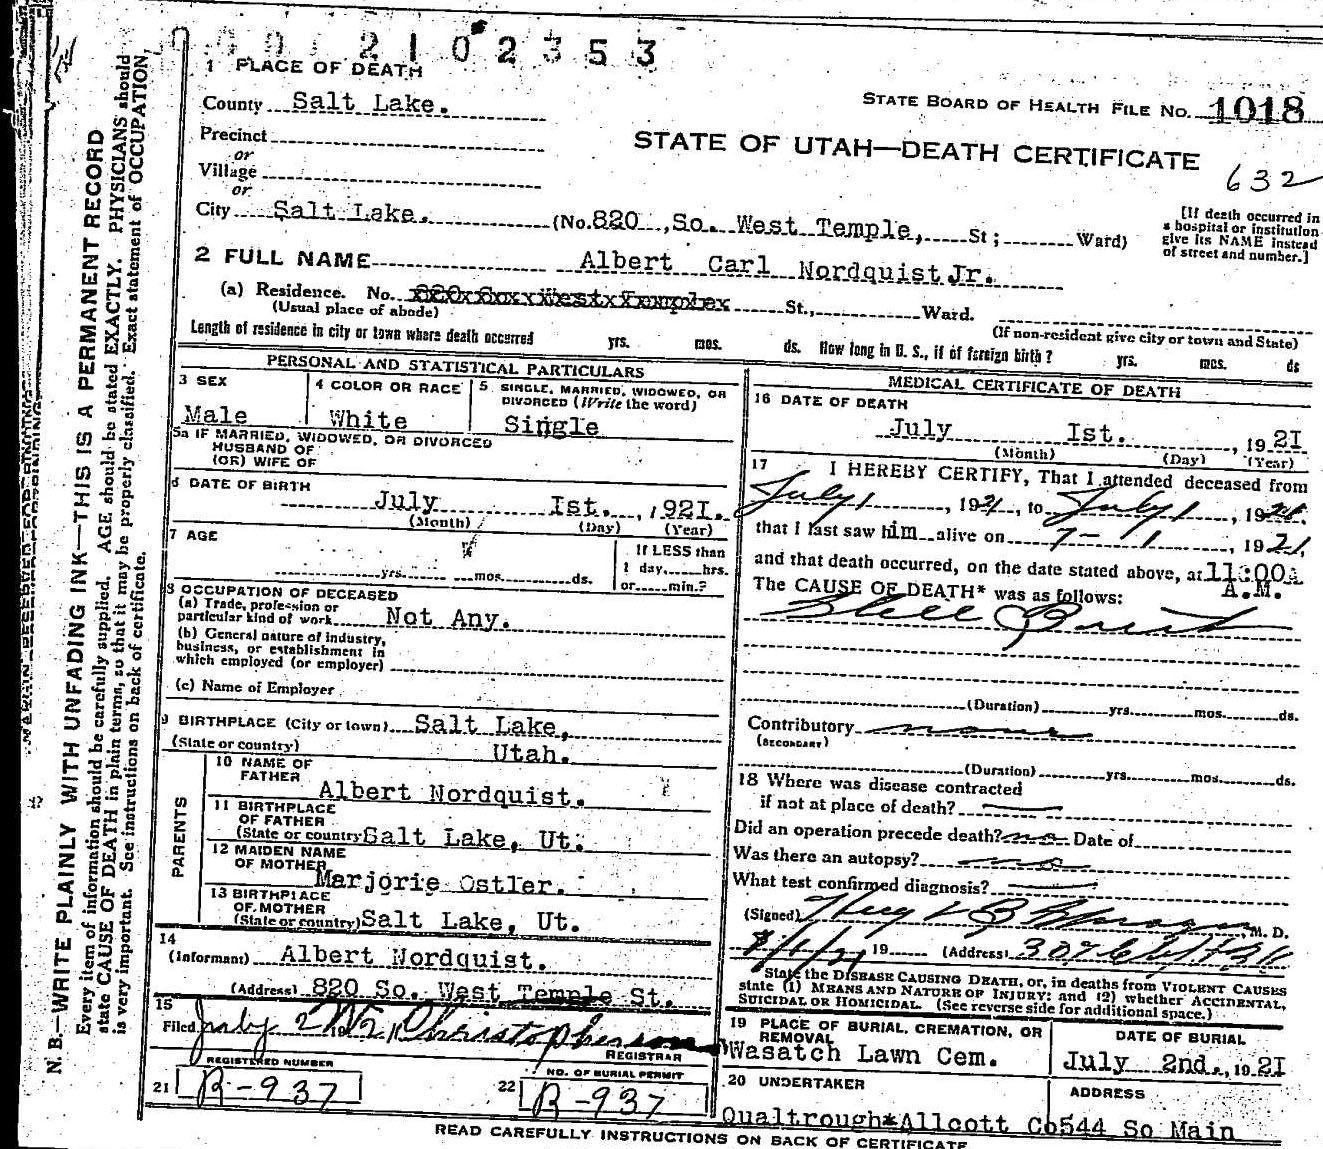 2102353
1 PLACE OF DEATH
STATE BOARD OF HEALTH FILE NO. 1018
County Salt Lake.
STATE OF UTAH—DEATH CERTIFICATE
632
Precinct
or
Village
or
City Salt Lake. (No. 820, So. West Temple, St; Ward)
[If death occurred in
a hospital or institution
give its NAME instead
of street and number.]
2 FULL NAME Albert Carl Nordquist Jr.
(a) Residence. No. St., Ward.
(Usual place of abode)
(If non-resident give city or town and State)
Length of residence in city or town where death occurred yrs. mos. ds. How long in U. S., if of foreign birth? yrs. mos. ds
PERSONAL AND STATISTICAL PARTICULARS
3 SEX
Male
4 COLOR OR RACE
White
5 SINGLE, MARRIED, WIDOWED, OR
DIVORCED (Write the word)
Single
5a IF MARRIED, WIDOWED, OR DIVORCED
HUSBAND OF
(OR) WIFE OF
6 DATE OF BIRTH
July Ist. , 1921.
(Month) (Day) (Year)
7 AGE
yrs. mos. ds.
If LESS than
1 day, hrs.
or min.?
8 OCCUPATION OF DECEASED
(a) Trade, profession or
particular kind of work Not Any.
(b) General nature of industry,
business, or establishment in
which employed (or employer)
(c) Name of Employer
9 BIRTHPLACE (City or town) Salt Lake,
(State or country) Utah.
PARENTS
10 NAME OF
FATHER
Albert Nordquist.
11 BIRTHPLACE
OF FATHER
(State or country) Salt Lake, Ut.
12 MAIDEN NAME
OF MOTHER
Marjorie Ostler.
13 BIRTHPLACE
OF MOTHER
(State or country) Salt Lake, Ut.
14
(Informant) Albert Nordquist.
(Address) 820 So. West Temple St.
15
Filed July 2 Christopherson
REGISTRAR
REGISTERED NUMBER
21 R-937
NO. OF BURIAL PERMIT
22 R-937
MEDICAL CERTIFICATE OF DEATH
16 DATE OF DEATH
July Ist. , 1921
(Month) (Day) (Year)
17 I HEREBY CERTIFY, That I attended deceased from
July 1, 1921, to July 1, 1921.
that I last saw him alive on 7- 1, 1921,
and that death occurred, on the date stated above, at 11:00
A.M.
The CAUSE OF DEATH* was as follows:
(Duration) yrs. mos. ds.
Contributory none
(SECONDARY)
(Duration) yrs. mos. ds.
18 Where was disease contracted
if not at place of death?
Did an operation precede death? no Date of
Was there an autopsy? no
What test confirmed diagnosis?
(Signed) M. D.
19 (Address)
State the DISEASE CAUSING DEATH, or, in deaths from VIOLENT CAUSES
state (1) MEANS AND NATURE OF INJURY; and (2) whether ACCIDENTAL,
SUICIDAL OR HOMICIDAL. (See reverse side for additional space.)
19 PLACE OF BURIAL, CREMATION, OR
REMOVAL
Wasatch Lawn Cem.
DATE OF BURIAL
July 2nd., 1921
20 UNDERTAKER
Qualtrough*Allcott Co
ADDRESS
544 So Main
READ CAREFULLY INSTRUCTIONS ON BACK OF CERTIFICATE
N. B.—WRITE PLAINLY WITH UNFADING INK—THIS IS A PERMANENT RECORD
Every item of information should be carefully supplied. AGE should be stated EXACTLY. PHYSICIANS should
state CAUSE OF DEATH in plain terms, so that it may be properly classified. Exact statement of OCCUPATION
is very important. See instructions on back of certificate.